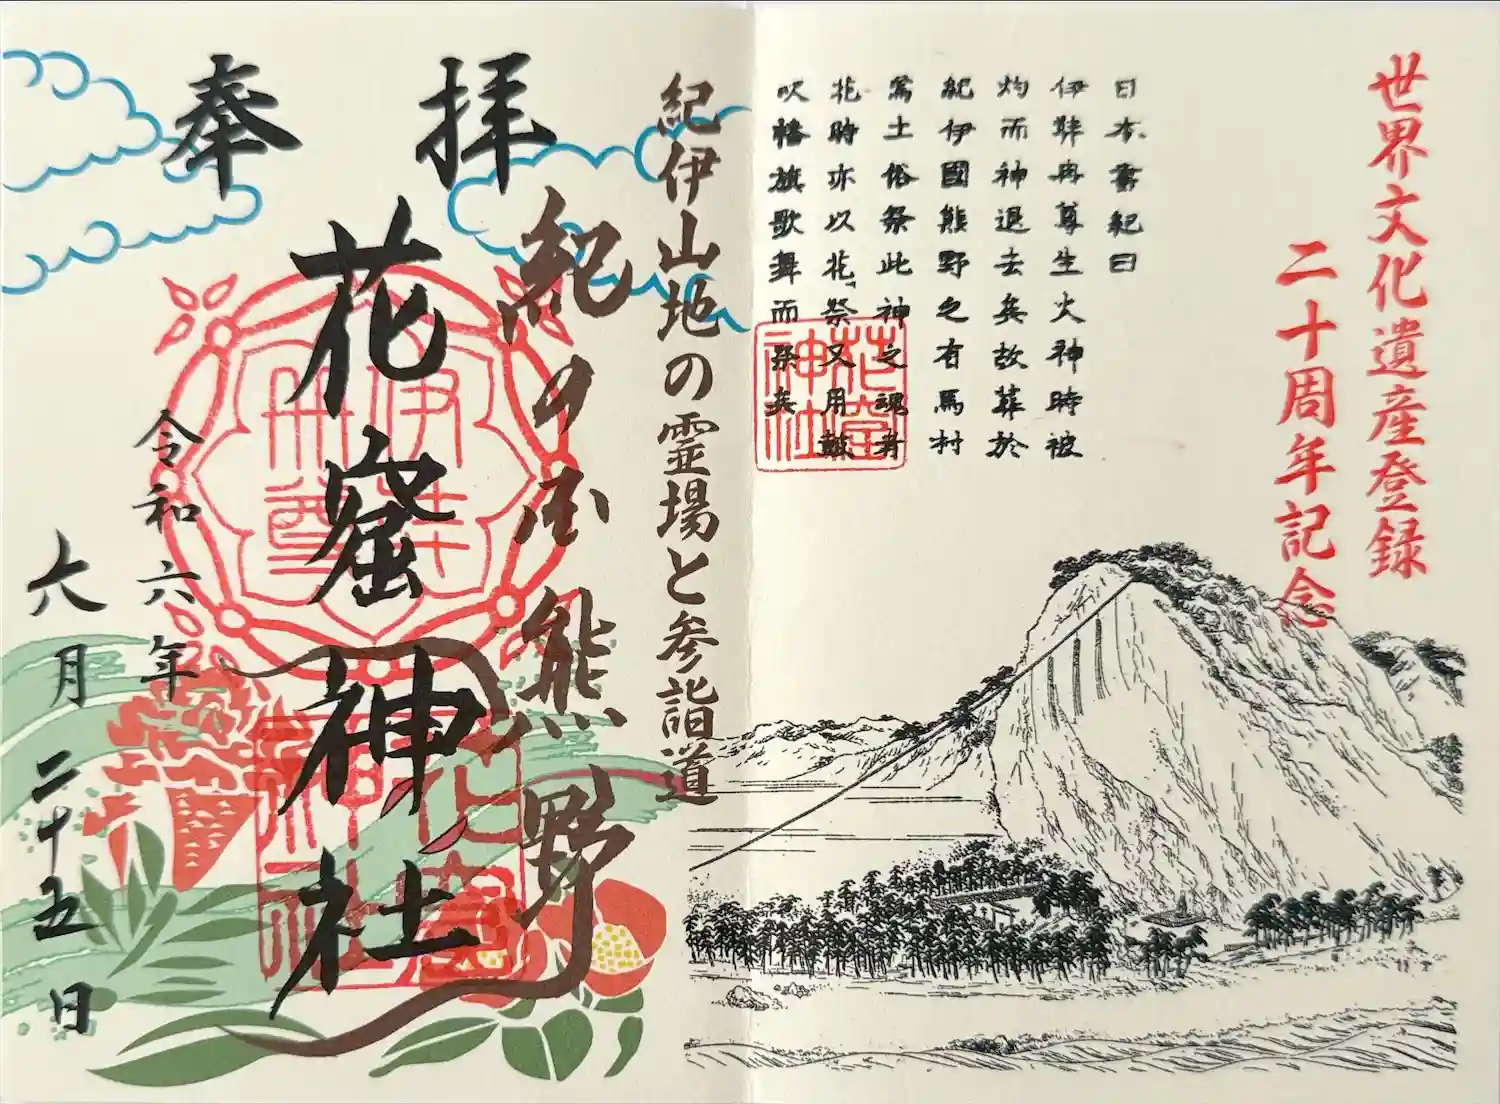 世界文化遺産登録
二十周年記念
日本書紀曰
伊弉冉尊生火神時被
灼而神退去矣故葬於
紀伊國熊野之有馬村
焉土俗祭此神之魂者
花時亦以花祭又用鼓
吹幡旗歌舞而祭矣
花窟
神社
紀伊山地の霊場と参詣道
紀の国 熊野
奉拝
花窟神社
伊弉
冉尊
令和六年
六月二十五日